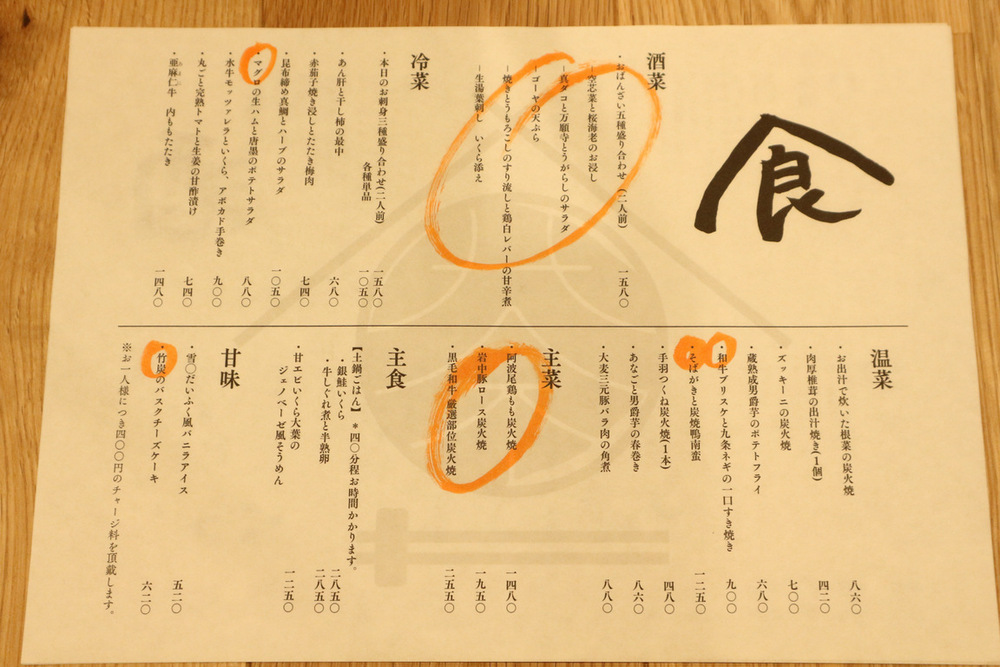 食
酒菜
・おばんざい五種盛り合わせ(二人前) 一五八〇
―空芯菜と桜海老のお浸し
―真ダコと万願寺とうがらしのサラダ
―ゴーヤの天ぷら
―焼きとうもろこしのすり流しと鶏白レバーの甘辛煮
―生湯葉刺し いくら添え
冷菜
・本日のお刺身三種盛り合わせ(二人前) 一五八〇
各種単品 一〇五〇
・あん肝と干し柿の最中 六八〇
・赤茄子焼き浸しとたたき梅肉 七四〇
・昆布締め真鯛とハーブのサラダ 一〇五〇
・マグロの生ハムと唐墨のポテトサラダ 八八〇
・水牛モッツァレラといくら、アボカド手巻き 九〇〇
・丸ごと完熟トマトと生姜の甘酢漬け 七四〇
・亜麻仁牛 内ももたたき 一四八〇
温菜
・お出汁で炊いた根菜の炭火焼 八六〇
・肉厚椎茸の出汁焼き(1個) 四二〇
・ズッキーニの炭火焼 七〇〇
・蔵熟成男爵芋のポテトフライ 六八〇
・和牛ブリスケと九条ネギの一口すき焼き 九〇〇
・そばがきと炭焼鴨南蛮 一二五〇
・手羽つくね炭火焼(1本) 四八〇
・あなごと男爵芋の春巻き 八六〇
・大麦三元豚バラ肉の角煮 八八〇
主菜
・阿波尾鶏もも炭火焼 一四八〇
・岩中豚ロース炭火焼 一九五〇
・黒毛和牛 厳選部位炭火焼 二五五〇
主食
【土鍋ごはん】*四〇分程お時間かかります。
・銀鮭いくら 二八五〇
・牛しぐれ煮と半熟卵 二八五〇
・甘エビいくら大葉の
ジェノベーゼ風そうめん 一二五〇
甘味
・雪〇だいふく風バニラアイス 五二〇
・竹炭のバスクチーズケーキ 六二〇
※お一人様につき四〇〇円のチャージ料を頂戴します。